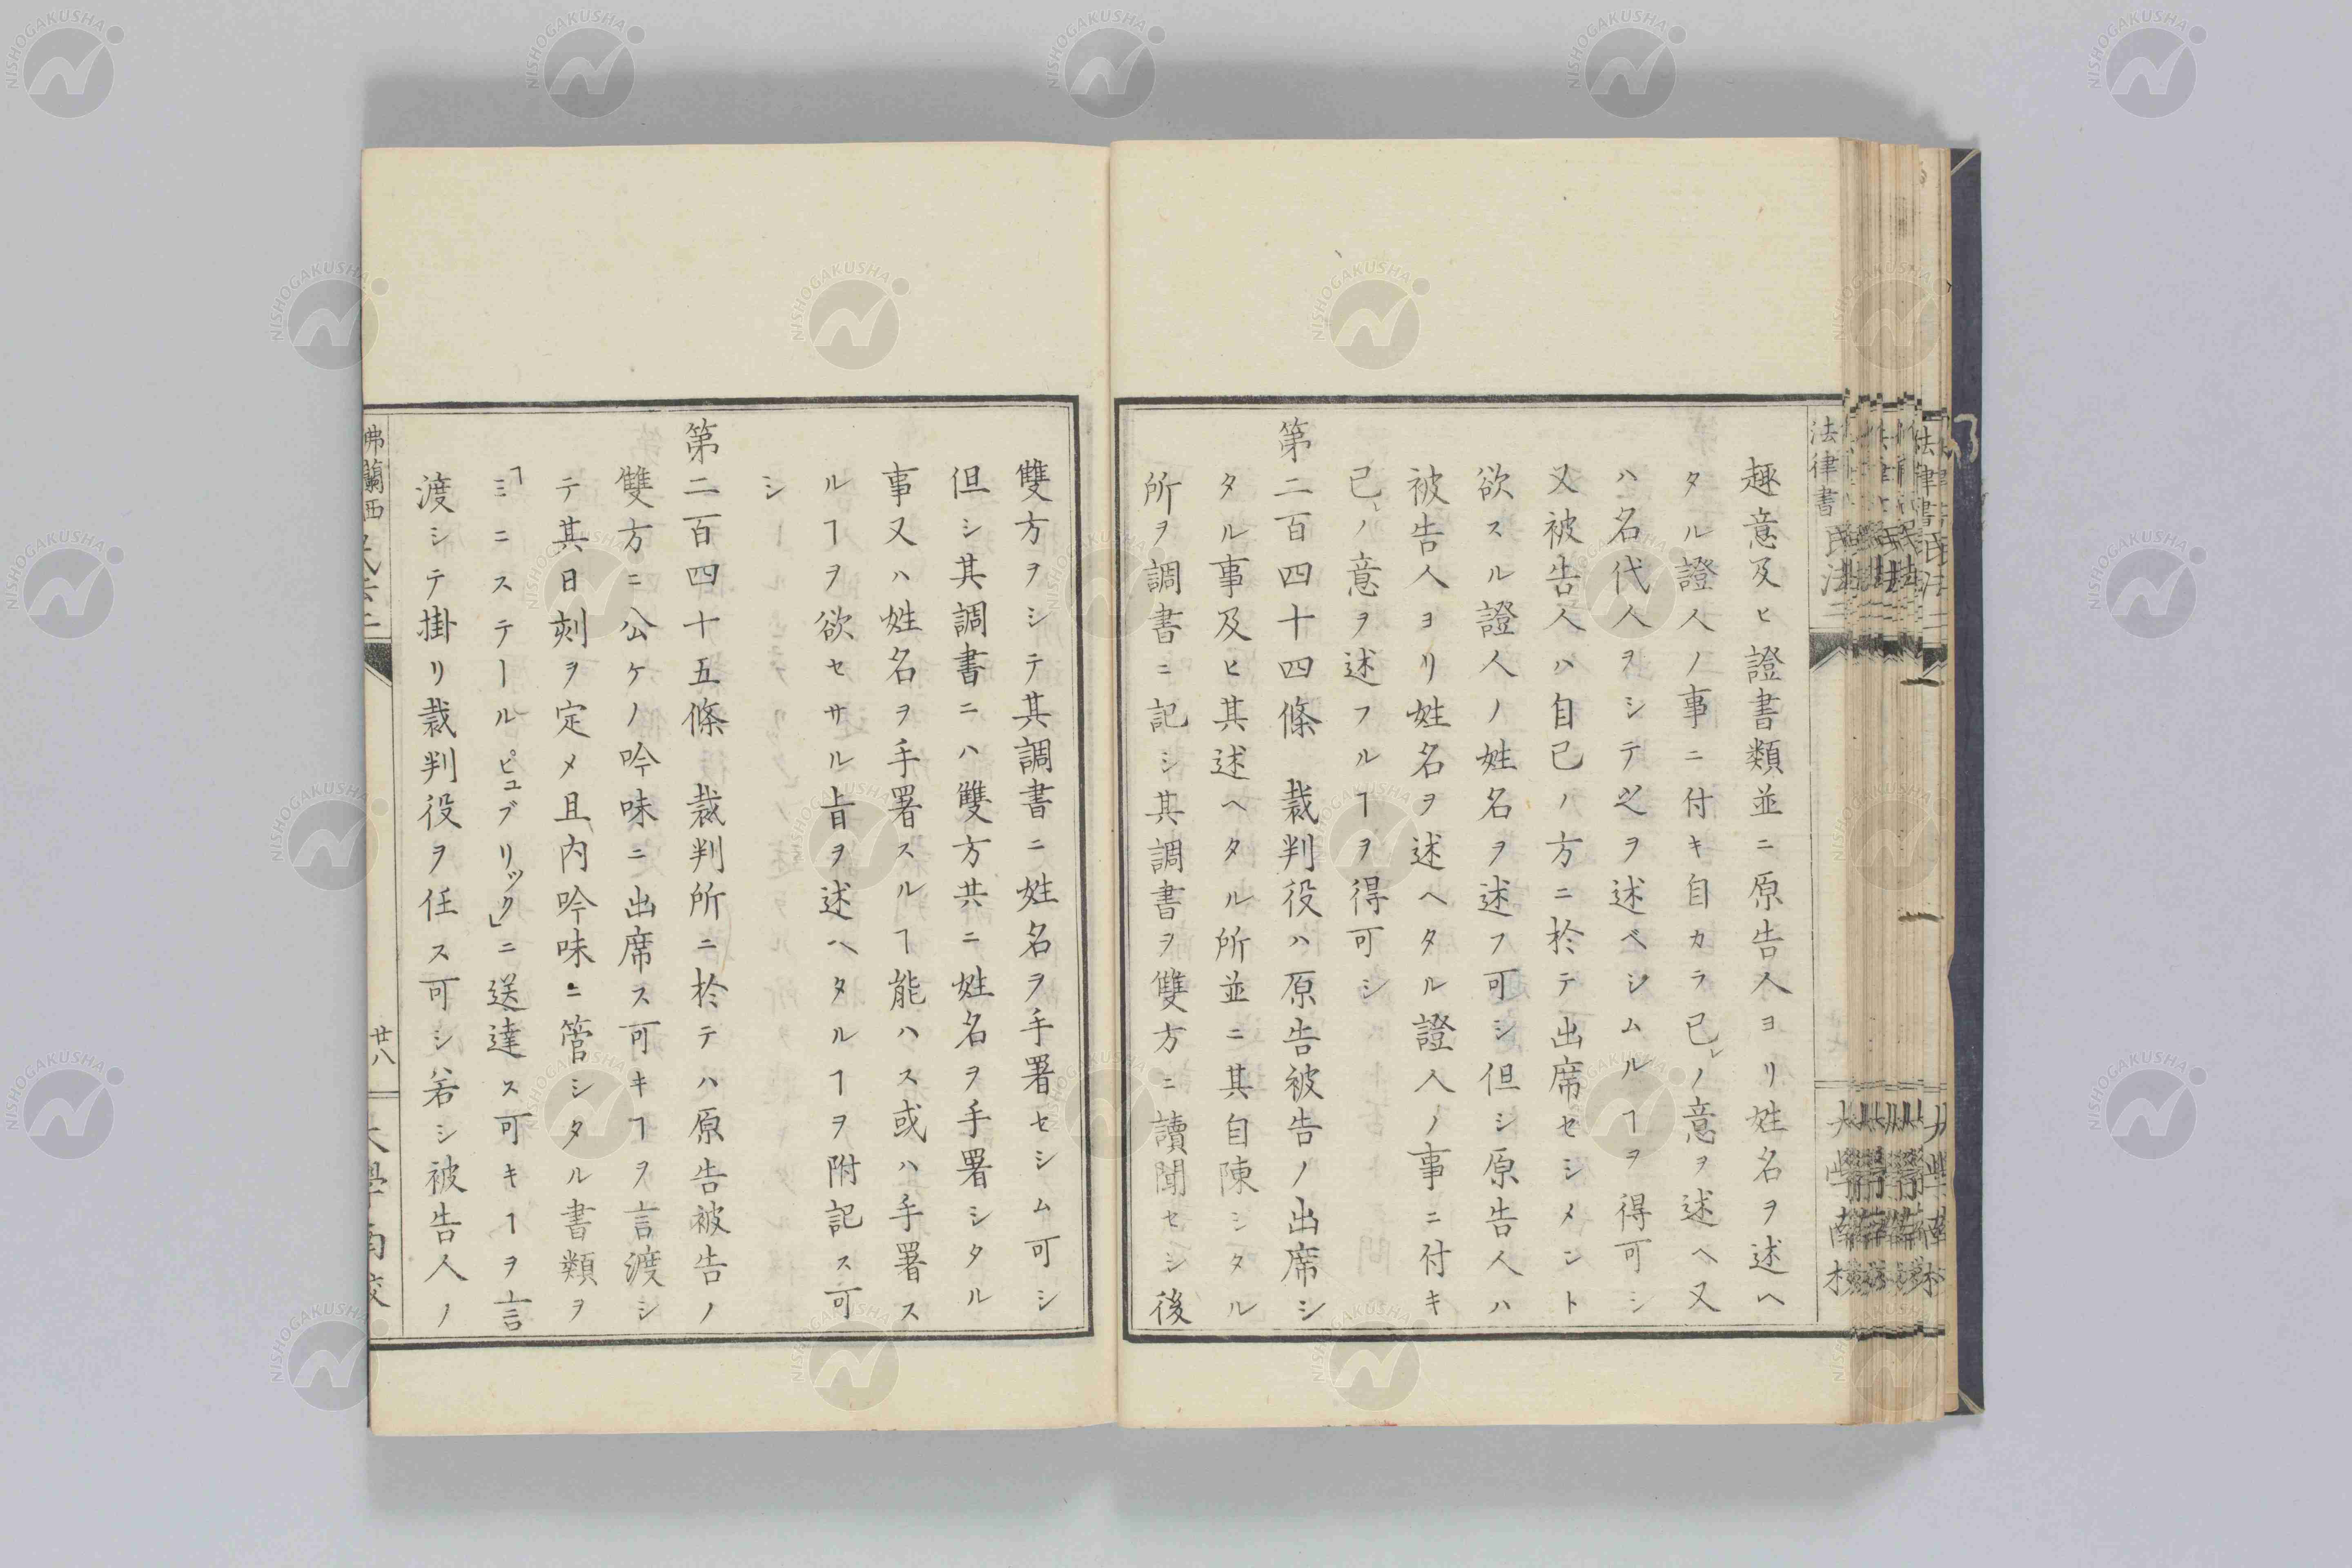 趣意及ヒ證書類並ニ原告人ヨリ姓名ヲ述ヘ
タル證人ノ事ニ付キ自カラ己レノ意ヲ述ヘ又
ハ名代人ヲシテ之ヲ述ベシムルヿヲ得可シ
又被告人ハ自己ノ方ニ於テ出席セシメント
欲スル證人ノ姓名ヲ述フ可シ但シ原告人ハ
被告人ヨリ姓名ヲ述ヘタル證人ノ事ニ付キ
己レノ意ヲ述フルヿヲ得可シ
第二百四十四條　裁判役ハ原告被告ノ出席シ
タル事及ヒ其述ヘタル所並ニ其自陳シタル
所ヲ調書ニ記シ其調書ヲ雙方ニ讀聞セシ後
雙方ヲシテ其調書ニ姓名ヲ手署セシム可シ
但シ其調書ニハ雙方共ニ姓名ヲ手署シタル
事又ハ姓名ヲ手署スルヿ能ハス或ハ手署ス
ルヿヲ欲セサル旨ヲ述ヘタルヿヲ附記ス可
シ
第二百四十五條　裁判所ニ於テハ原告被告ノ
雙方ニ公ケノ吟味ニ出席ス可キヿヲ言渡シ
テ其日刻ヲ定メ且內吟味ニ管シタル書類ヲ
「ミニステールピュブリック」ニ送達ス可キヿヲ言
渡シテ掛リ裁判役ヲ任ス可シ若シ被告人ノ
法律書
佛蘭西
廿八
NISHOGAKUSHA